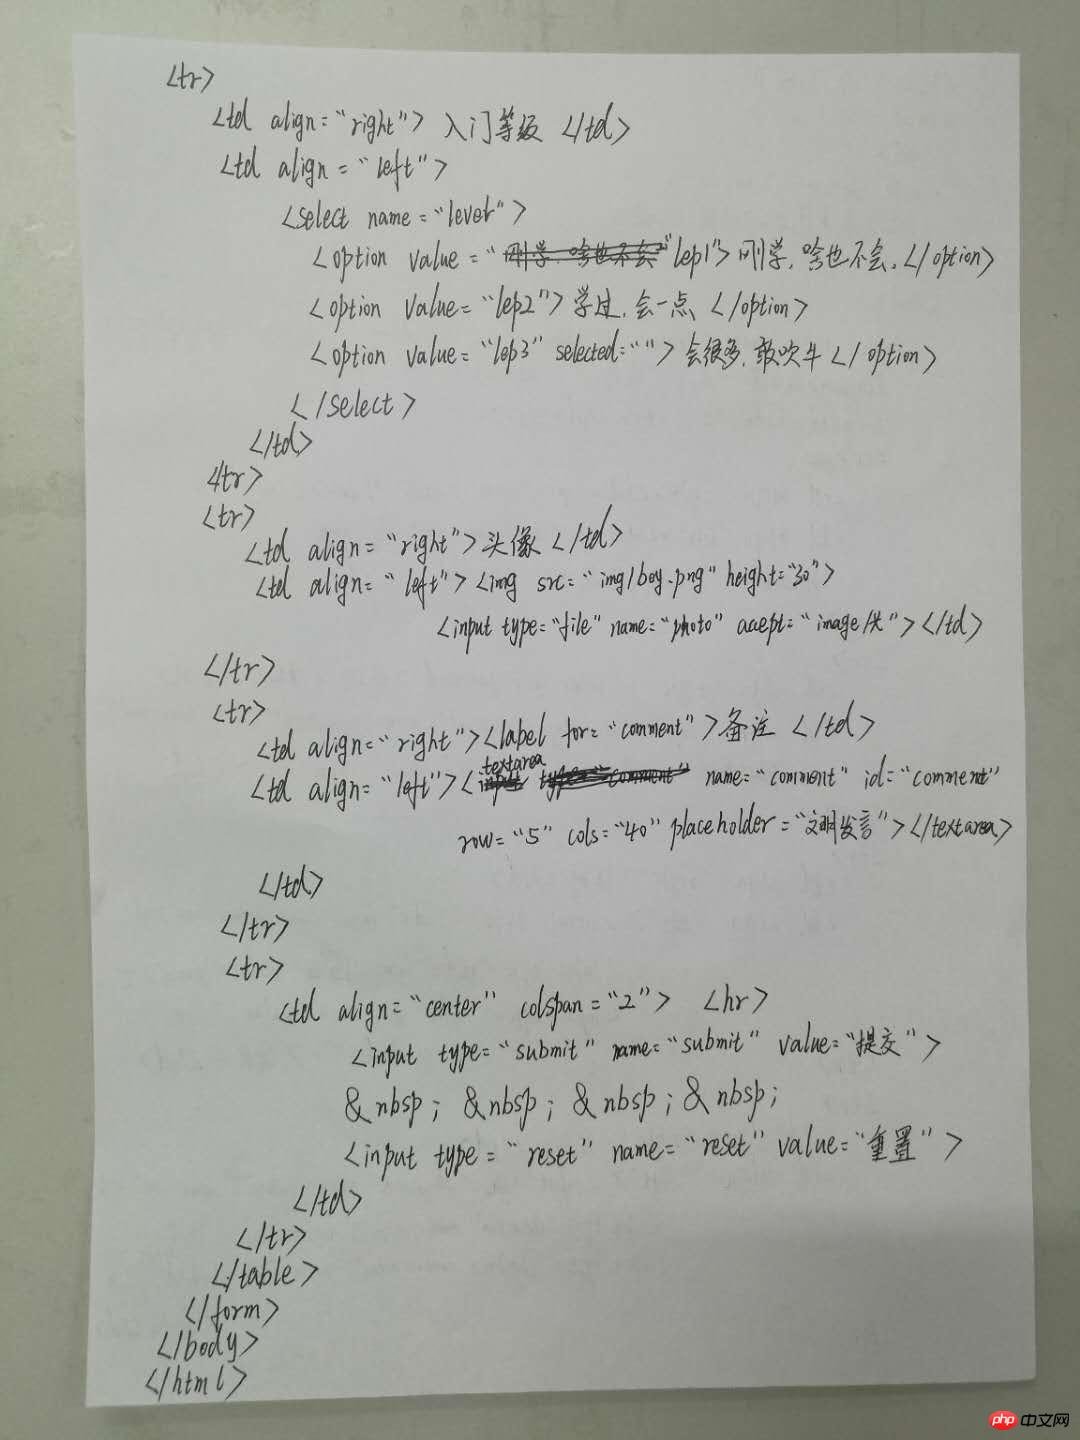 <tr>
<td align="right"> 入门等级 </td>
<td align="left">
<select name="level">
<option value="lep1"> 刚学,啥也不会,</option>
<option value="lep2"> 学过,会一点 </option>
<option value="lep3" selected=""> 会很多,敢吹牛 </option>
</select>
</td>
</tr>
<tr>
<td align="right">头像 </td>
<td align="left"> <img src="img/boy.png" height="30">
<input type="file" name="photo" accept="image/*"></td>
</tr>
<tr>
<td align="right"><label for="comment">备注 </td>
<td align="left"><textarea name="comment" id="comment"
row="5" cols="40" placeholder="文明发言"></textarea>
</td>
</tr>
<tr>
<td align="center" colspan="2"> <hr>
<input type="submit" name="submit" value="提交">
&nbsp; &nbsp; &nbsp; &nbsp;
<input type="reset" name="reset" value="重置">
</td>
</tr>
</table>
</form>
</body>
</html>
php 中文网